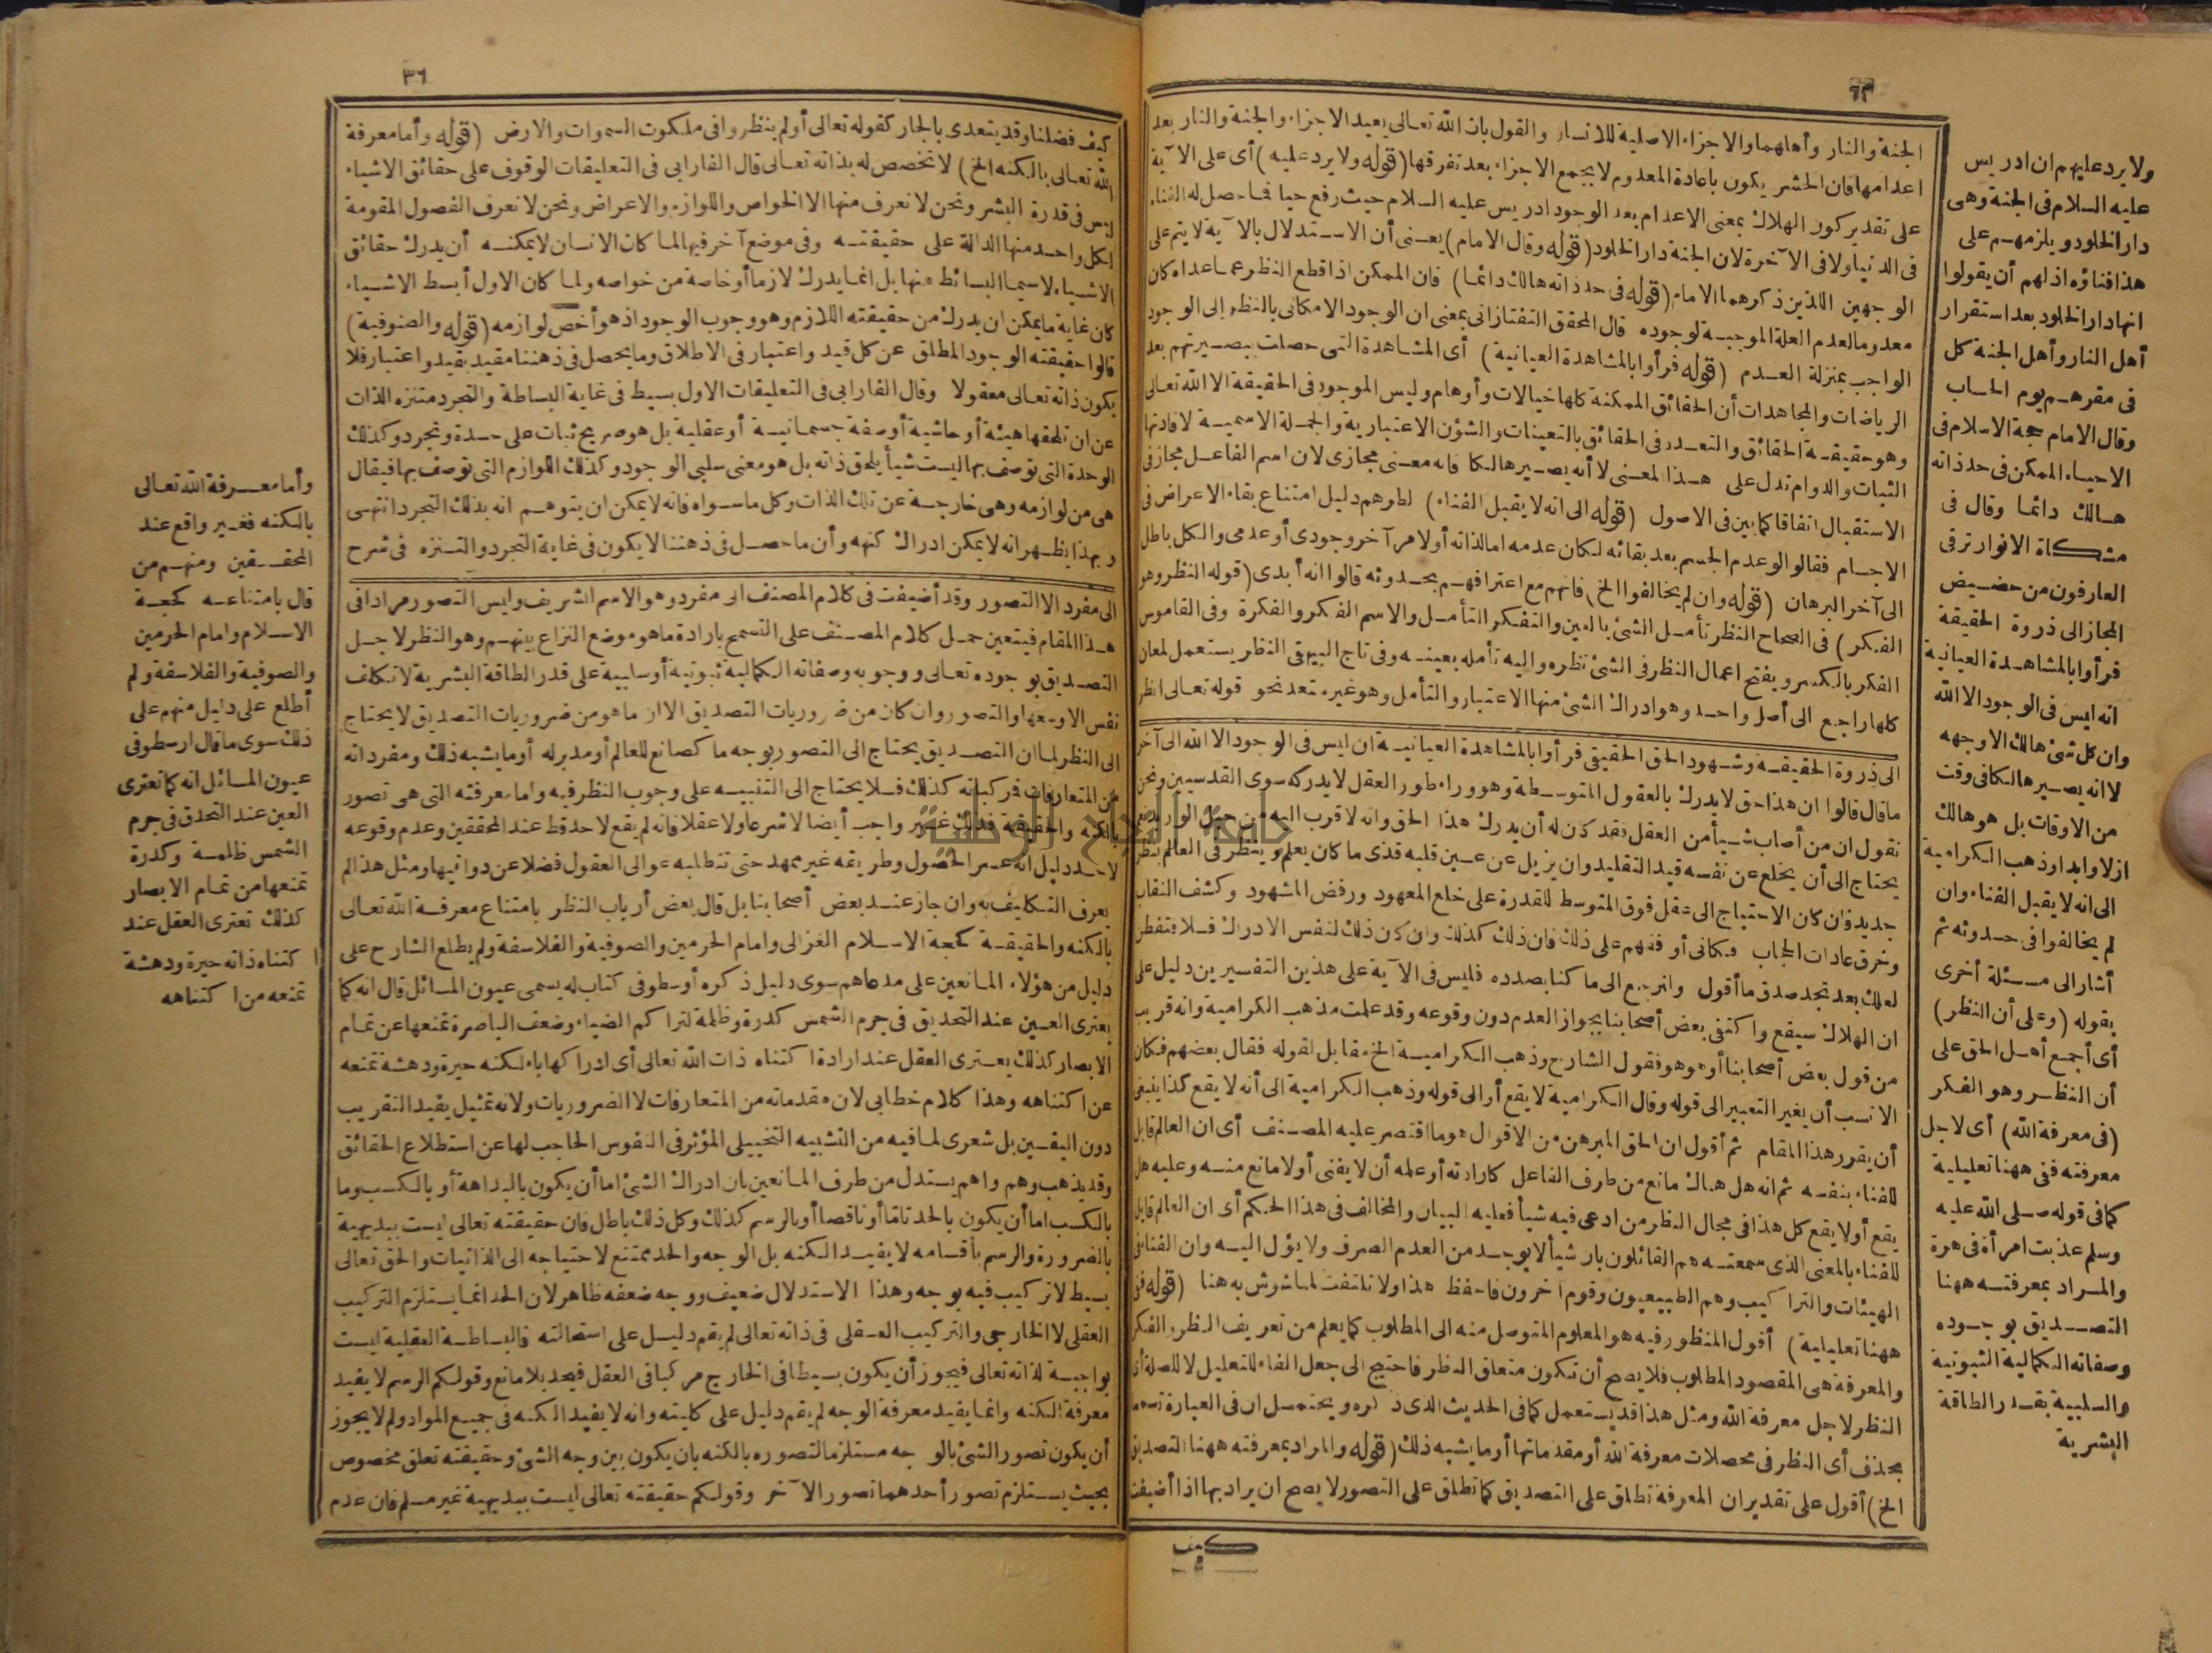 ولا يرد عليهم ان ادريس
عليه السلام فى الجنة وهى
دار الخلود ويلزمهم على
هذا فناؤه اذ لهم أن يقولوا
انها دار الخلود بعد استقرار
أهل النار وأهل الجنة كل
فى مقرهم يوم الحساب
وقال الامام حجة الاسلام فى
الاحياء الممكن فى حد ذاته
هالك دائما وقال فى
مشكاة الانوار ترقى
العارفون من حضيض
المجاز الى ذروة الحقيقة
فرأوا بالمشاهدة العيانية
انه ليس فى الوجود الا الله
وان كل شئ هالك الا وجهه
لا انه يصير هالكا فى وقت
من الاوقات بل هو هالك
ازلا وابدا وذهب الكرامية
الى انه لا يقبل الفناء وان
لم يخالفوا فى حدوثه ثم
أشار الى مسئلة أخرى
بقوله (وعلى أن النظر)
أى أجمع أهل الحق على
أن النظر وهو الفكر
(فى معرفة الله) أى لاجل
معرفته ففى ههنا تعليلية
كما فى قوله صلى الله عليه
وسلم عذبت امرأة فى هرة
والمراد بمعرفته ههنا
التصديق بوجوده
وصفاته الكمالية الثبوتية
والسلبية بقدر الطاقة
البشرية
الجنة والنار وأهلهما والاجزاء الاصلية للانسان والقول بان الله تعالى يعيد الاجزاء والجنة والنار بعد
اعدامها فان الحشر يكون باعادة المعدوم لا بجمع الاجزاء بعد تفرقها (قوله ولا يرد عليه) أى على الآية
على تقدير كون الهلاك بمعنى الاعدام بعد الوجود ادريس عليه السلام حيث رفع حيا فما حصل له الفناء
فى الدنيا ولا فى الآخرة لان الجنة دار الخلود (قوله وقال الامام) يعنى أن الاستدلال بالآية لا يتم على
الوجهين اللذين ذكرهما الامام (قوله فى حد ذاته هالك دائما) فان الممكن اذا قطع النظر عما عداه كان
معدوما لعدم العلة الموجبة لوجوده قال المحقق التفتازانى بمعنى ان الوجود الامكانى بالنظر الى الوجود
الواجب بمنزلة العدم (قوله فرأوا بالمشاهدة العيانية) أى المشاهدة التى حصلت ببصيرتهم بعد
الرياضات والمجاهدات أن الحقائق الممكنة كلها خيالات وأوهام وليس الموجود فى الحقيقة الا الله تعالى
وهو حقيقة الحقائق والتعدد فى الحقائق بالتعينات والشؤن الاعتبارية والجملة الاسمية لافادتها
الثبات والدوام تدل على هذا المعنى لا أنه يصير هالكا فانه معنى مجازى لان اسم الفاعل مجاز فى
الاستقبال اتفاقا كما بين فى الاصول (قوله الى انه لا يقبل الفناء) لطرهم دليل امتناع بقاء الاعراض فى
الاجسام فقالوا لو عدم الجسم بعد بقائه لكان عدمه اما لذاته أو لامر آخر وجودى أو عدمى والكل باطل
الى آخر البرهان (قوله وان لم يخالفوا الخ) فانهم مع اعترافهم بحدوثه قالوا انه أبدى (قوله النظر وهو
الفكر) فى الصحاح النظر تأمل الشئ بالعين والتفكر التأمل والاسم الفكر والفكرة وفى القاموس
الفكر بالكسر ويفتح اعمال النظر فى الشئ نظره واليه تأمله بعينه وفى تاج البيهقى النظر يستعمل لمعان
كلها راجع الى أصل واحد وهو ادراك الشئ منها الاعتبار والتأمل وهو غير متعد نحو قوله تعالى انظر
الى ذروة الحقيقة وشهود الحق الحقيقى فرأوا بالمشاهدة العيانية ان ليس فى الوجود الا الله الى آخر
ما قال قالوا ان هذا حق لا يدرك بالعقول المتوسطة وهو وراء طور العقل لا يدركه سوى القدسيين ونحن
نقول ان من أصاب شيأ من العقل فقد كان له أن يدرك هذا الحق وانه لا قرب اليه من حبل الوريد نعم
يحتاج الى أن يخلع عن نفسه قيد التقليد وان يزيل عن عين قلبه قذى ما كان يعلم وينظر فى العالم بنظر
جديد وان كان الاحتياج الى عقل فوق المتوسط للقدرة على خلع المعهود ورفض المشهود وكشف النقاب
وخرق عادات الحجاب فكأنى أوقفهم على ذلك فان ذلك كذلك وان كان ذلك لنفس الادراك فلا فتفطن
لعلك بعد تجد صدق ما أقول ولنرجع الى ما كنا بصدده فليس فى الآية على هذين التفسيرين دليل على
ان الهلاك سيقع واكتفى بعض أصحابنا بجواز العدم دون وقوعه وقد علمت مذهب الكرامية وانه قريب
من قول بعض أصحابنا أو هو هو فقول الشارح وذهب الكرامية الخ مقابل لقوله فقال بعضهم فكان
الانسب أن يغير التعبير الى قوله وقال الكرامية لا يقع أو الى قوله وذهب الكرامية الى أنه لا يقع كذا ينبغى
أن يقرر هذا المقام ثم أقول ان الحق المبرهن من الاقوال هو ما اقتصر عليه المصنف أى ان العالم قابل
للفناء بنفسه ثم انه هل هناك مانع من طرف الفاعل كارادته أو علمه أن لا يفنى أولا مانع منه وعليه هل
يقع أولا يقع كل هذا فى مجال النظر من ادعى فيه شيأ فعليه البيان والمخالف فى هذا الحكم أى ان العالم قابل
للفناء بالمعنى الذى سمعته هم القائلون بان شيأ لا يوجد من العدم الصرف ولا يؤل اليه وان الفناء فى
الهيئات والتراكيب وهم الطبيعيون وقوم اخرون فاحفظ هذا ولا تلتفت لما شوش به هنا (قوله ففى
ههنا تعليلية) أقول المنظور فيه هو المعلوم المتوصل منه الى المطلوب كما يعلم من تعريف النظر بالفكر
والمعرفة هى المقصود المطلوب فلا يصح أن تكون متعلق النظر فاحتيج الى جعل الفاء للتعليل لا للصلة أى
النظر لاجل معرفة الله ومثل هذا قد يستعمل كما فى الحديث الذى ذكره ويحتمل ان فى العبارة توسعا
بحذف أى النظر فى محصلات معرفة الله أو مقدماتها أو ما يشبه ذلك (قوله والمراد بمعرفته ههنا التصديق
الخ) أقول على تقدير ان المعرفة تطلق على التصديق كما تطلق على التصور لا يصح ان يراد بها اذا أضيفت
كيف
٣٦
كيف فضلنا وقد يتعدى بالجار كقوله تعالى أولم ينظروا فى ملكوت السموات والارض (قوله وأما معرفة
الله تعالى بالكنه الخ) لا تخصص له بذاته تعالى قال الفارابى فى التعليقات الوقوف على حقائق الاشياء
ليس فى قدرة البشر ونحن لا نعرف منها الا الخواص واللوازم والاعراض ونحن لا نعرف الفصول المقومة
لكل واحد منها الدالة على حقيقته وفى موضع آخر فيها لما كان الانسان لا يمكنه أن يدرك حقائق
الاشياء لا سيما البسائط منها بل انما يدرك لازما أو خاصة من خواصه ولما كان الاول أبسط الاشياء
كان غاية ما يمكن ان يدرك من حقيقته اللازم وهو وجوب الوجود اذ هو أخص لوازمه (قوله والصوفية)
قالوا حقيقته الوجود المطلق عن كل قيد واعتبار فى الاطلاق وما يحصل فى ذهننا مقيد بقيد واعتبار فلا
يكون ذاته تعالى معقولا وقال الفارابى فى التعليقات الاول بسيط فى غاية البساطة والتجرد متنزه الذات
عن ان تلحقها هيئة أو حاشية أو صفة جسمانية أو عقلية بل هو صريح ثبات على حدة وتجرد وكذلك
الوحدة التى توصف بها ليست شيأ يلحق ذاته بل هو معنى سلبى الوجود وكذلك اللوازم التى توصف بها فيقال
هى من لوازمه وهى خارجة عن تلك الذات وكل ما سواه فانه لا يمكن ان يتوهم انه بذلك التجرد انتهى
وبهذا يظهر انه لا يمكن ادراك كنهه وأن ما حصل فى ذهننا لا يكون فى غاية التجرد والتنزه فى شرح
الى مفرد الا التصور وقد أضيفت فى كلام المصنف الى مفرد وهو الاسم الشريف وليس التصور مرادا فى
هذا المقام فيتعين حمل كلام المصنف على التسمح بارادة ما هو موضع النزاع بينهم وهو النظر لاجل
التصديق بوجوده تعالى ووجوبه وصفاته الكمالية ثبوتية أو سلبية على قدر الطاقة البشرية لا تكلف
نفس الا وسعها والتصور وان كان من ضروريات التصديق الا ان ما هو من ضروريات التصديق لا يحتاج
الى النظر لما ان التصديق يحتاج الى التصور بوجه ما كصانع للعالم أو مدبر له أو ما يشبه ذلك ومفرداته
من المتعارفات فمركباته كذلك فلا يحتاج الى التنبيه على وجوب النظر فيه واما معرفته التى هى تصور
بالكنه والحقيقة فذلك غير واجب أيضا لا شرعا ولا عقلا فانه لم يقع لاحد قط عند المحققين وعدم وقوعه
لاحد دليل انه عسر الحصول وطريقه غير ممهد حتى تتطلبه عوالى العقول فضلا عن دوانيها ومثل هذا لم
يعرف التكليف به وان جاز عند بعض أصحابنا بل قال بعض أرباب النظر بامتناع معرفة الله تعالى
بالكنه والحقيقة كحجة الاسلام الغزالى وامام الحرمين والصوفية والفلاسفة ولم يطلع الشارح على
دليل من هؤلاء المانعين على مدعاهم سوى دليل ذكره أوسطو فى كتاب له يسمى عيون المسائل قال انه كما
يعترى العين عند التحديق فى جرم الشمس كدرة وظلمة لتراكم الضياء وضعف الباصرة تمنعها عن تمام
الابصار كذلك يعترى العقل عند ارادة اكتناه ذات الله تعالى أى ادراكها بالكنه حيرة ودهشة تمنعه
عن اكتناهه وهذا كلام خطابى لان مقدماته من المتعارفات لا الضروريات ولانه تمثيل يفيد التقريب
دون اليقين بل شعرى لما فيه من التشبيه التخييلى المؤثر فى النفوس الحاجب لها عن استطلاع الحقائق
وقد يذهب وهم واهم يستدل من طرف المانعين بان ادراك الشئ اما أن يكون بالبداهة أو بالكسب وما
بالكسب اما أن يكون بالحد تاما أو ناقصا أو بالرسم كذلك وكل ذلك باطل فان حقيقته تعالى ليست ببديهية
بالضرورة والرسم بأقسامه لا يفيد الكنه بل الوجه والحد ممتنع لاحتياجه الى الذاتيات والحق تعالى
بسيط لا تركيب فيه بوجه وهذا الاستدلال ضعيف ووجه ضعفه ظاهر لان الحد انما يستلزم التركيب
العقلى لا الخارجى والتركيب العقلى فى ذاته تعالى لم يقم دليل على استحالته فالبساطة العقلية ليست
بواجبة لذاته تعالى فيجوز أن يكون بسيطا فى الخارج مركبا فى العقل فيحد بلا مانع وقولكم الرسم لا يفيد
معرفة الكنه وانما يفيد معرفة الوجه لم يقم دليل على كليته وانه لا يفيد الكنه فى جميع المواد ولم لا يجوز
أن يكون تصور الشئ بالوجه مستلزما لتصوره بالكنه بان يكون بين وجه الشئ وحقيقته تعلق مخصوص
بحيث يستلزم تصور أحدهما تصور الآخر وقولكم حقيقته تعالى ليست ببديهية غير مسلم فان عدم
وأما معرفة الله تعالى
بالكنه فغير واقع عند
المحققين ومنهم من
قال بامتناعه كحجة
الاسلام وامام الحرمين
والصوفية والفلاسفة ولم
أطلع على دليل منهم على
ذلك سوى ما قال ارسطو فى
عيون المسائل انه كما تعترى
العين عند التحدق فى جرم
الشمس ظلمة وكدرة
تمنعها من تمام الابصار
كذلك تعترى العقل عند
اكتناه ذاته حيرة ودهشة
تمنعه من اكتناهه